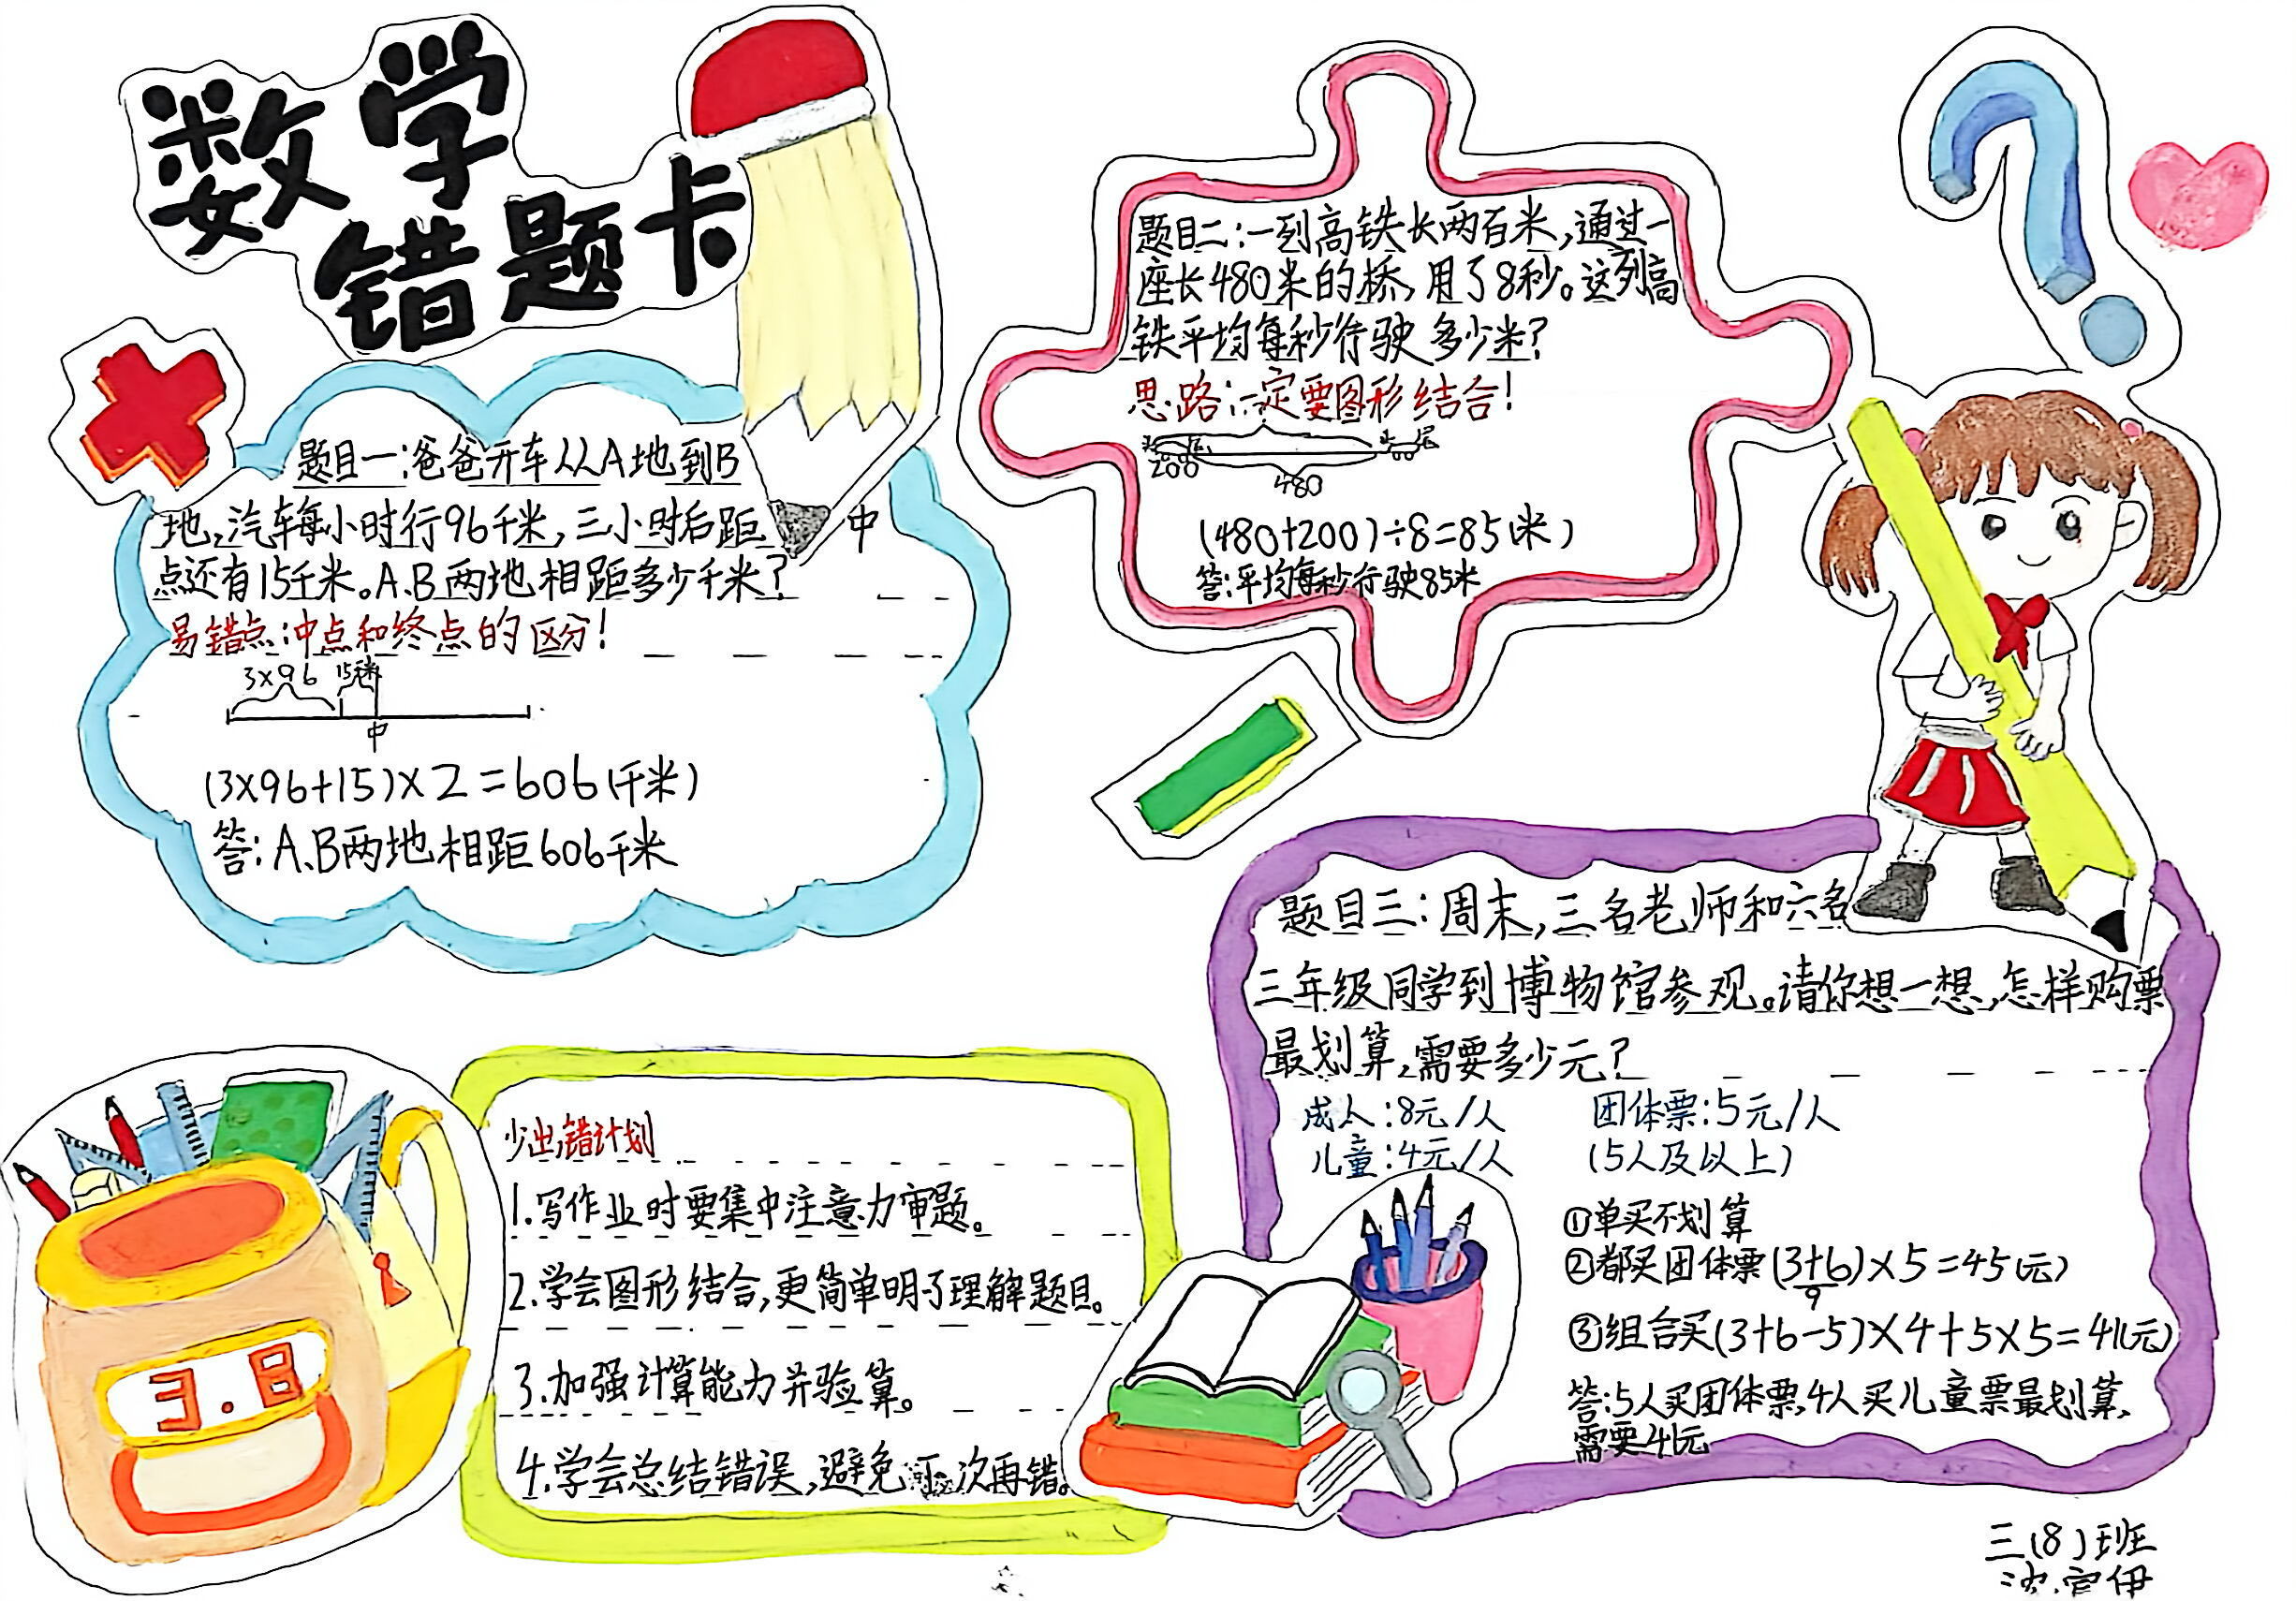 数学
错题卡
题目一:爸爸开车从A地到B
地,汽车每小时行96千米,三小时后距中
点还有15千米。A.B两地相距多少千米?
易错点:中点和终点的区分!
3×96 15千米
中
(3×96+15)×2=606(千米)
答:A、B两地相距606千米
题目二:一列高铁长两百米,通过一
座长480米的桥,用了8秒。这列高
铁平均每秒行驶多少米?
思路:一定要图形结合!
头 尾 头 尾
200
480
(480+200)÷8=85(米)
答:平均每秒行驶85米
题目三:周末,三名老师和六名
三年级同学到博物馆参观。请你想一想,怎样购票
最划算,需要多少元?
成人:8元/人 团体票:5元/人
儿童:4元/人 (5人及以上)
①单买不划算
②都买团体票(3+6)×5=45(元)
9
③组合买(3+6-5)×4+5×5=41(元)
答:5人买团体票,4人买儿童票最划算,
需要41元
少出错计划
1.写作业时要集中注意力审题。
2.学会图形结合,更简单明了理解题目。
3.加强计算能力并验算。
4.学会总结错误,避免下次再错。
3.8
三(8)班
伊